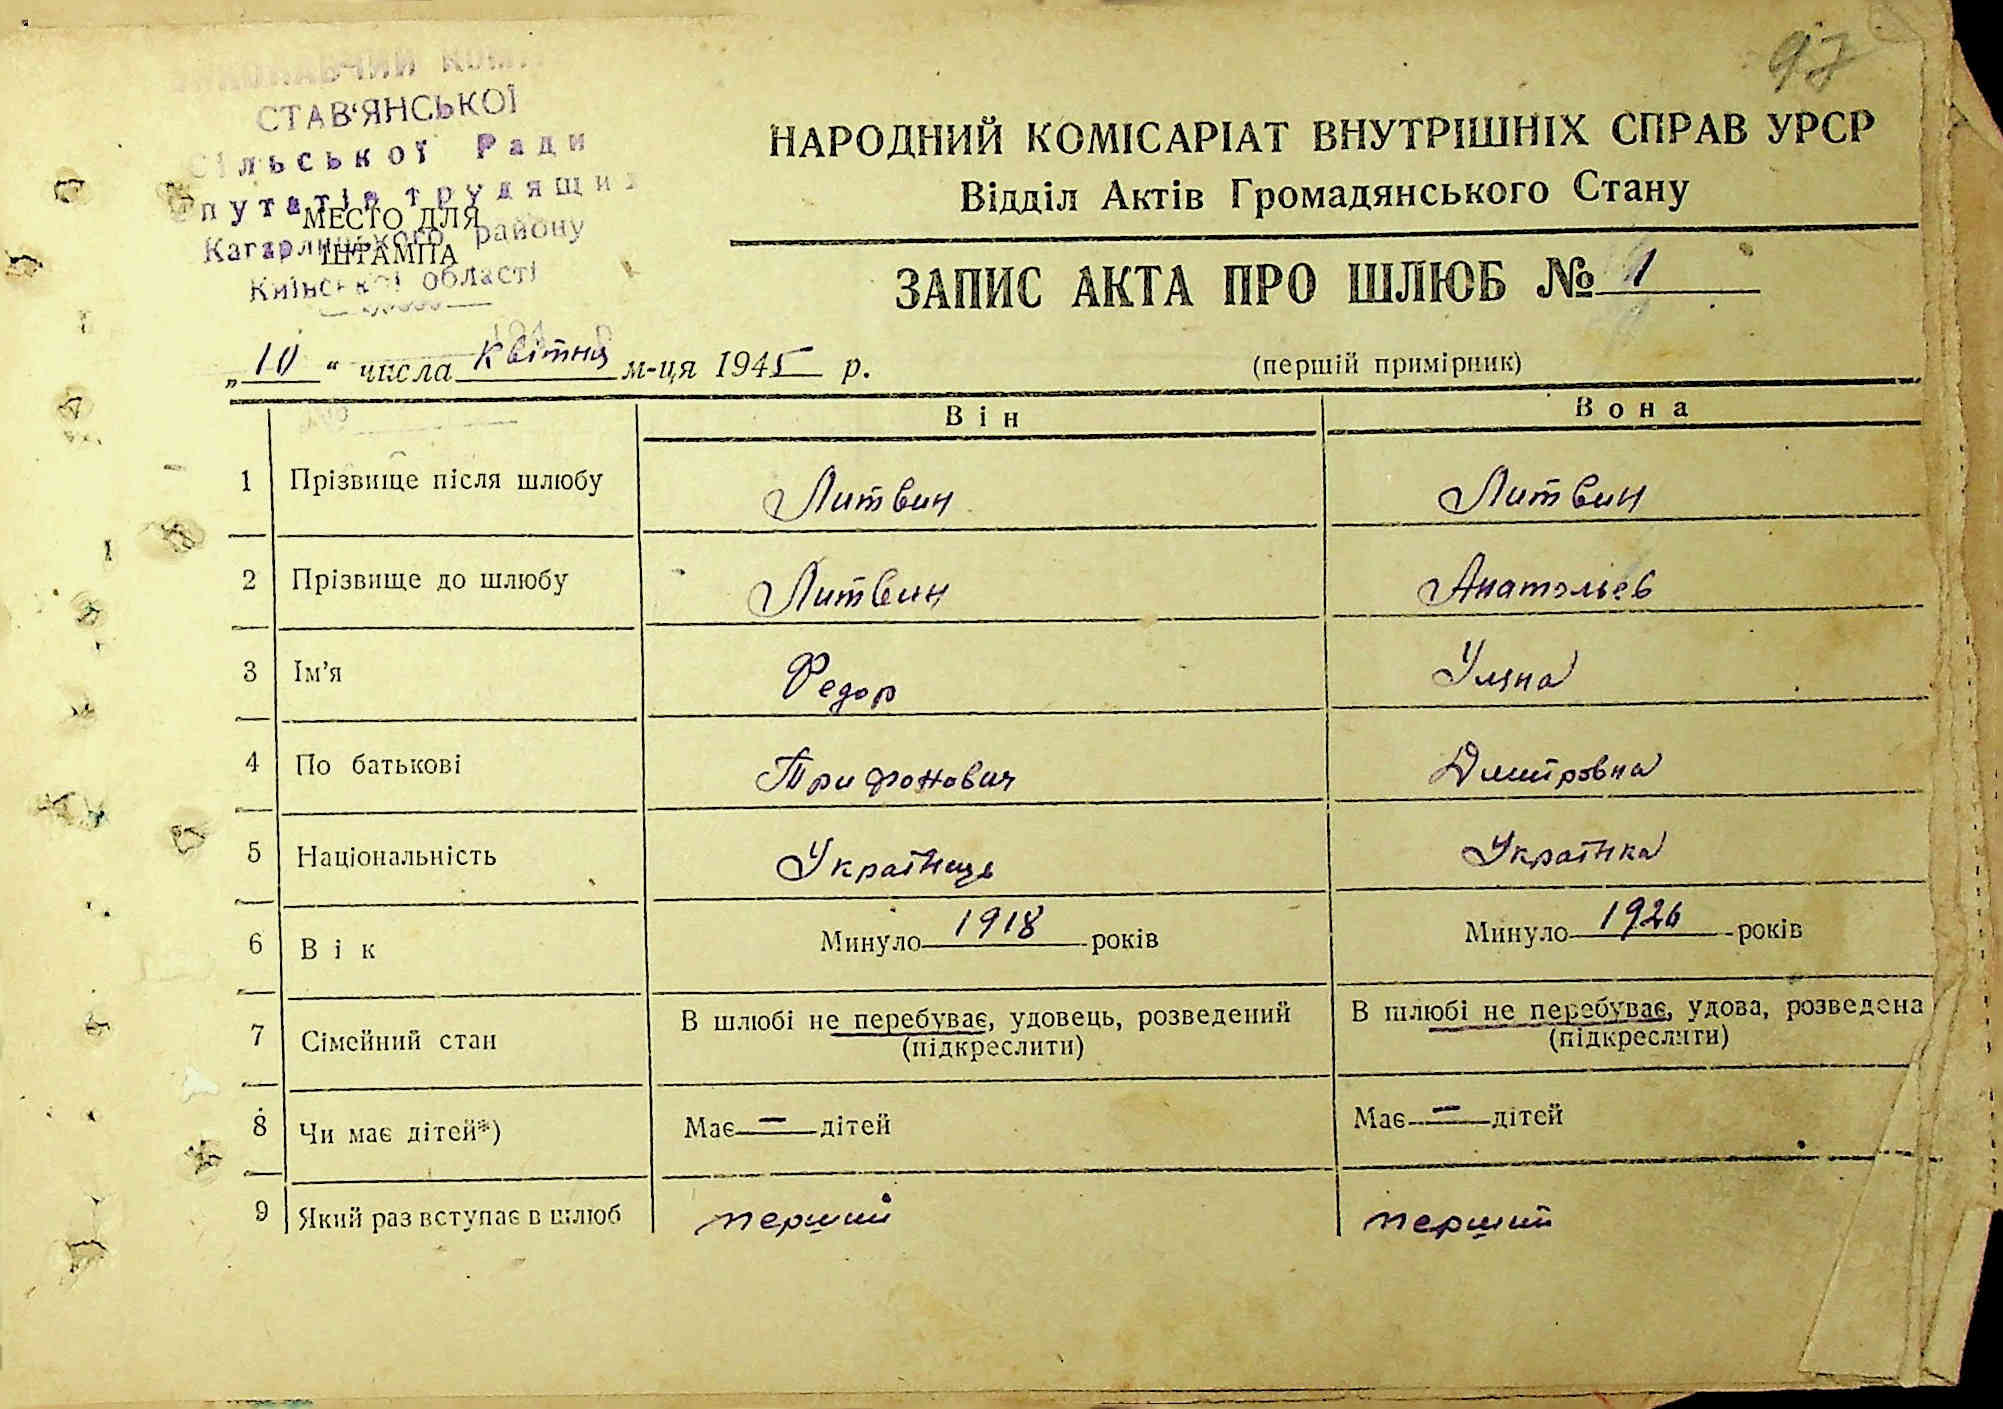 97
ВИКОНАВЧИЙ КОМ
СТАВ'ЯНСЬКОЇ
Сільської Ради
путатів трудящих
МЕСТО ДЛЯ
Кагарлицького району
ШТАМПА
Київської області
НАРОДНИЙ КОМІСАРІАТ ВНУТРІШНІХ СПРАВ УРСР
Відділ Актів Громадянського Стану
ЗАПИС АКТА ПРО ШЛЮБ № 1
„10“ числа квітня м-ця 1945 р.
(першій примірник)
Він Вона
1 Прізвище після шлюбу Литвин Литвин
2 Прізвище до шлюбу Литвин Анатольев
3 Ім'я Федор Уляна
4 По батькові Трифонович Дмитровна
5 Національність Українець Українка
6 Вік Минуло 1918 років Минуло 1926 років
7 Сімейний стан В шлюбі не перебуває, удовець, розведений В шлюбі не перебуває, удова, розведена
(підкреслити) (підкреслити)
8 Чи має дітей*) Має — дітей Має — дітей
9 Який раз вступає в шлюб перший перший